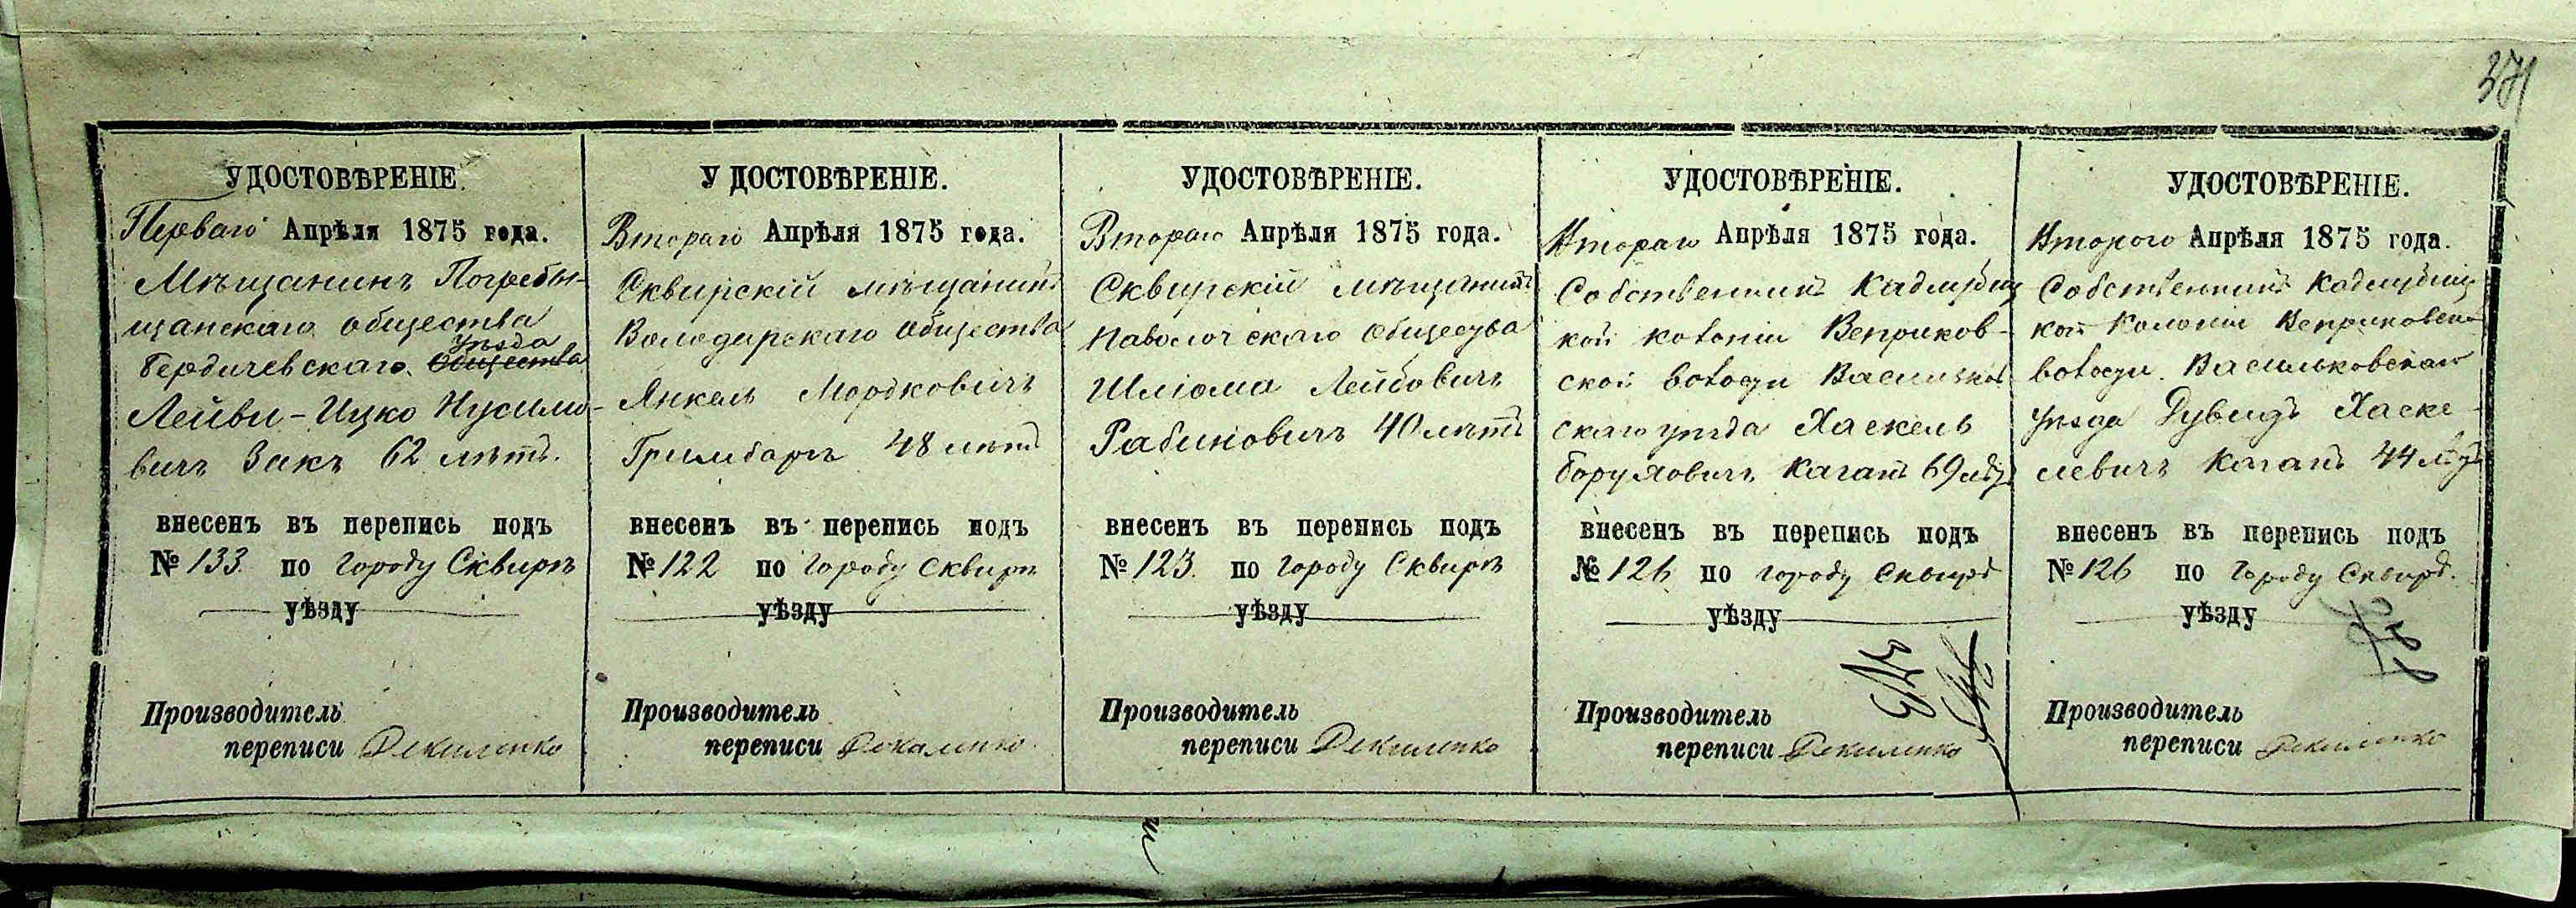 371
УДОСТОВѢРЕНІЕ.
Перваго Апрѣля 1875 года.
Мѣщанинъ Погребы-
щанскаго общества
уѣзда
Бердичевскаго общества
Лейви-Ицко Нусимо-
вичъ Закъ 62 лѣтъ.
внесенъ въ перепись подъ
№ 133. по городу Сквирѣ
уѣзду
Производитель
переписи
УДОСТОВѢРЕНІЕ.
Втораго Апрѣля 1875 года.
Сквирскій мѣщанинъ
Володарскаго общества
Янкель Мордковичъ
48 лѣтъ
внесенъ въ перепись подъ
№ 122 по городу Сквирѣ
уѣзду
Производитель
переписи
УДОСТОВѢРЕНІЕ.
Втораго Апрѣля 1875 года.
Сквирскій мѣщанинъ
Паволочскаго общества
Шліома Лейбовичъ
Рабиновичъ 40 лѣтъ
внесенъ въ перепись подъ
№ 123. по городу Сквирѣ
уѣзду
Производитель
переписи
УДОСТОВѢРЕНІЕ.
Втораго Апрѣля 1875 года.
Собственникъ Кадлубиц
кой колоніи Веприков-
ской волости Васильков
скаго уѣзда Хаскель
Боруховичъ Каганъ 69 лѣтъ
внесенъ въ перепись подъ
№ 126 по городу Сквирѣ
уѣзду
Производитель
переписи
УДОСТОВѢРЕНІЕ.
Второго Апрѣля 1875 года.
Собственникъ Кадлубиц
кой Колоніи Веприковской
волости Васильковскаго
уѣзда Дувидъ Хаске-
левичъ Каганъ 44 лѣтъ
внесенъ въ перепись подъ
№ 126 по городу Сквирѣ.
уѣзду
Производитель
переписи